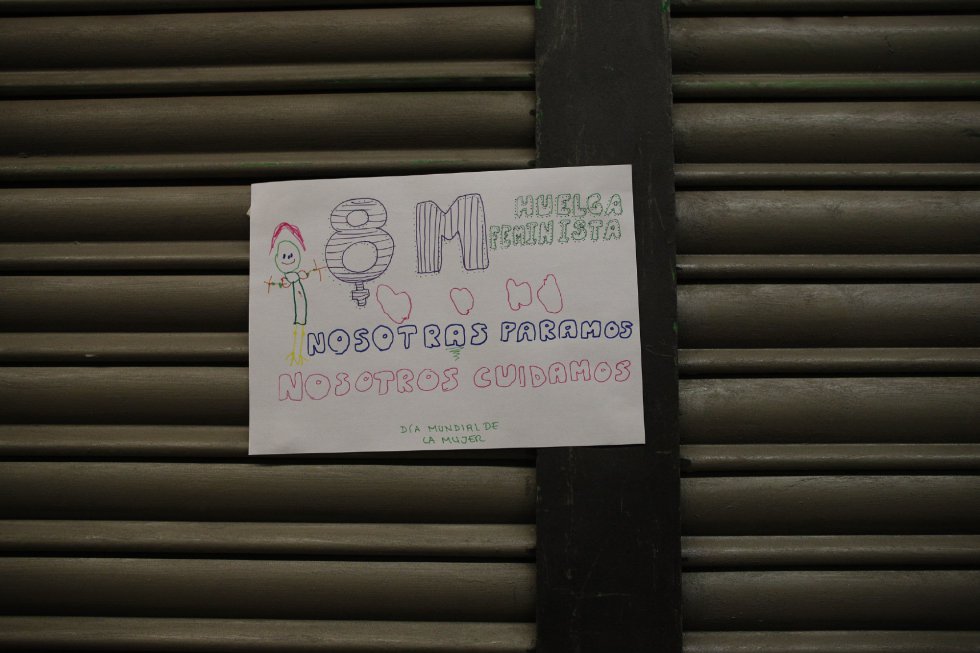 8 M HUELGA
FEMINISTA
NOSOTRAS PARAMOS
NOSOTROS CUIDAMOS
DÍA MUNDIAL DE
LA MUJER